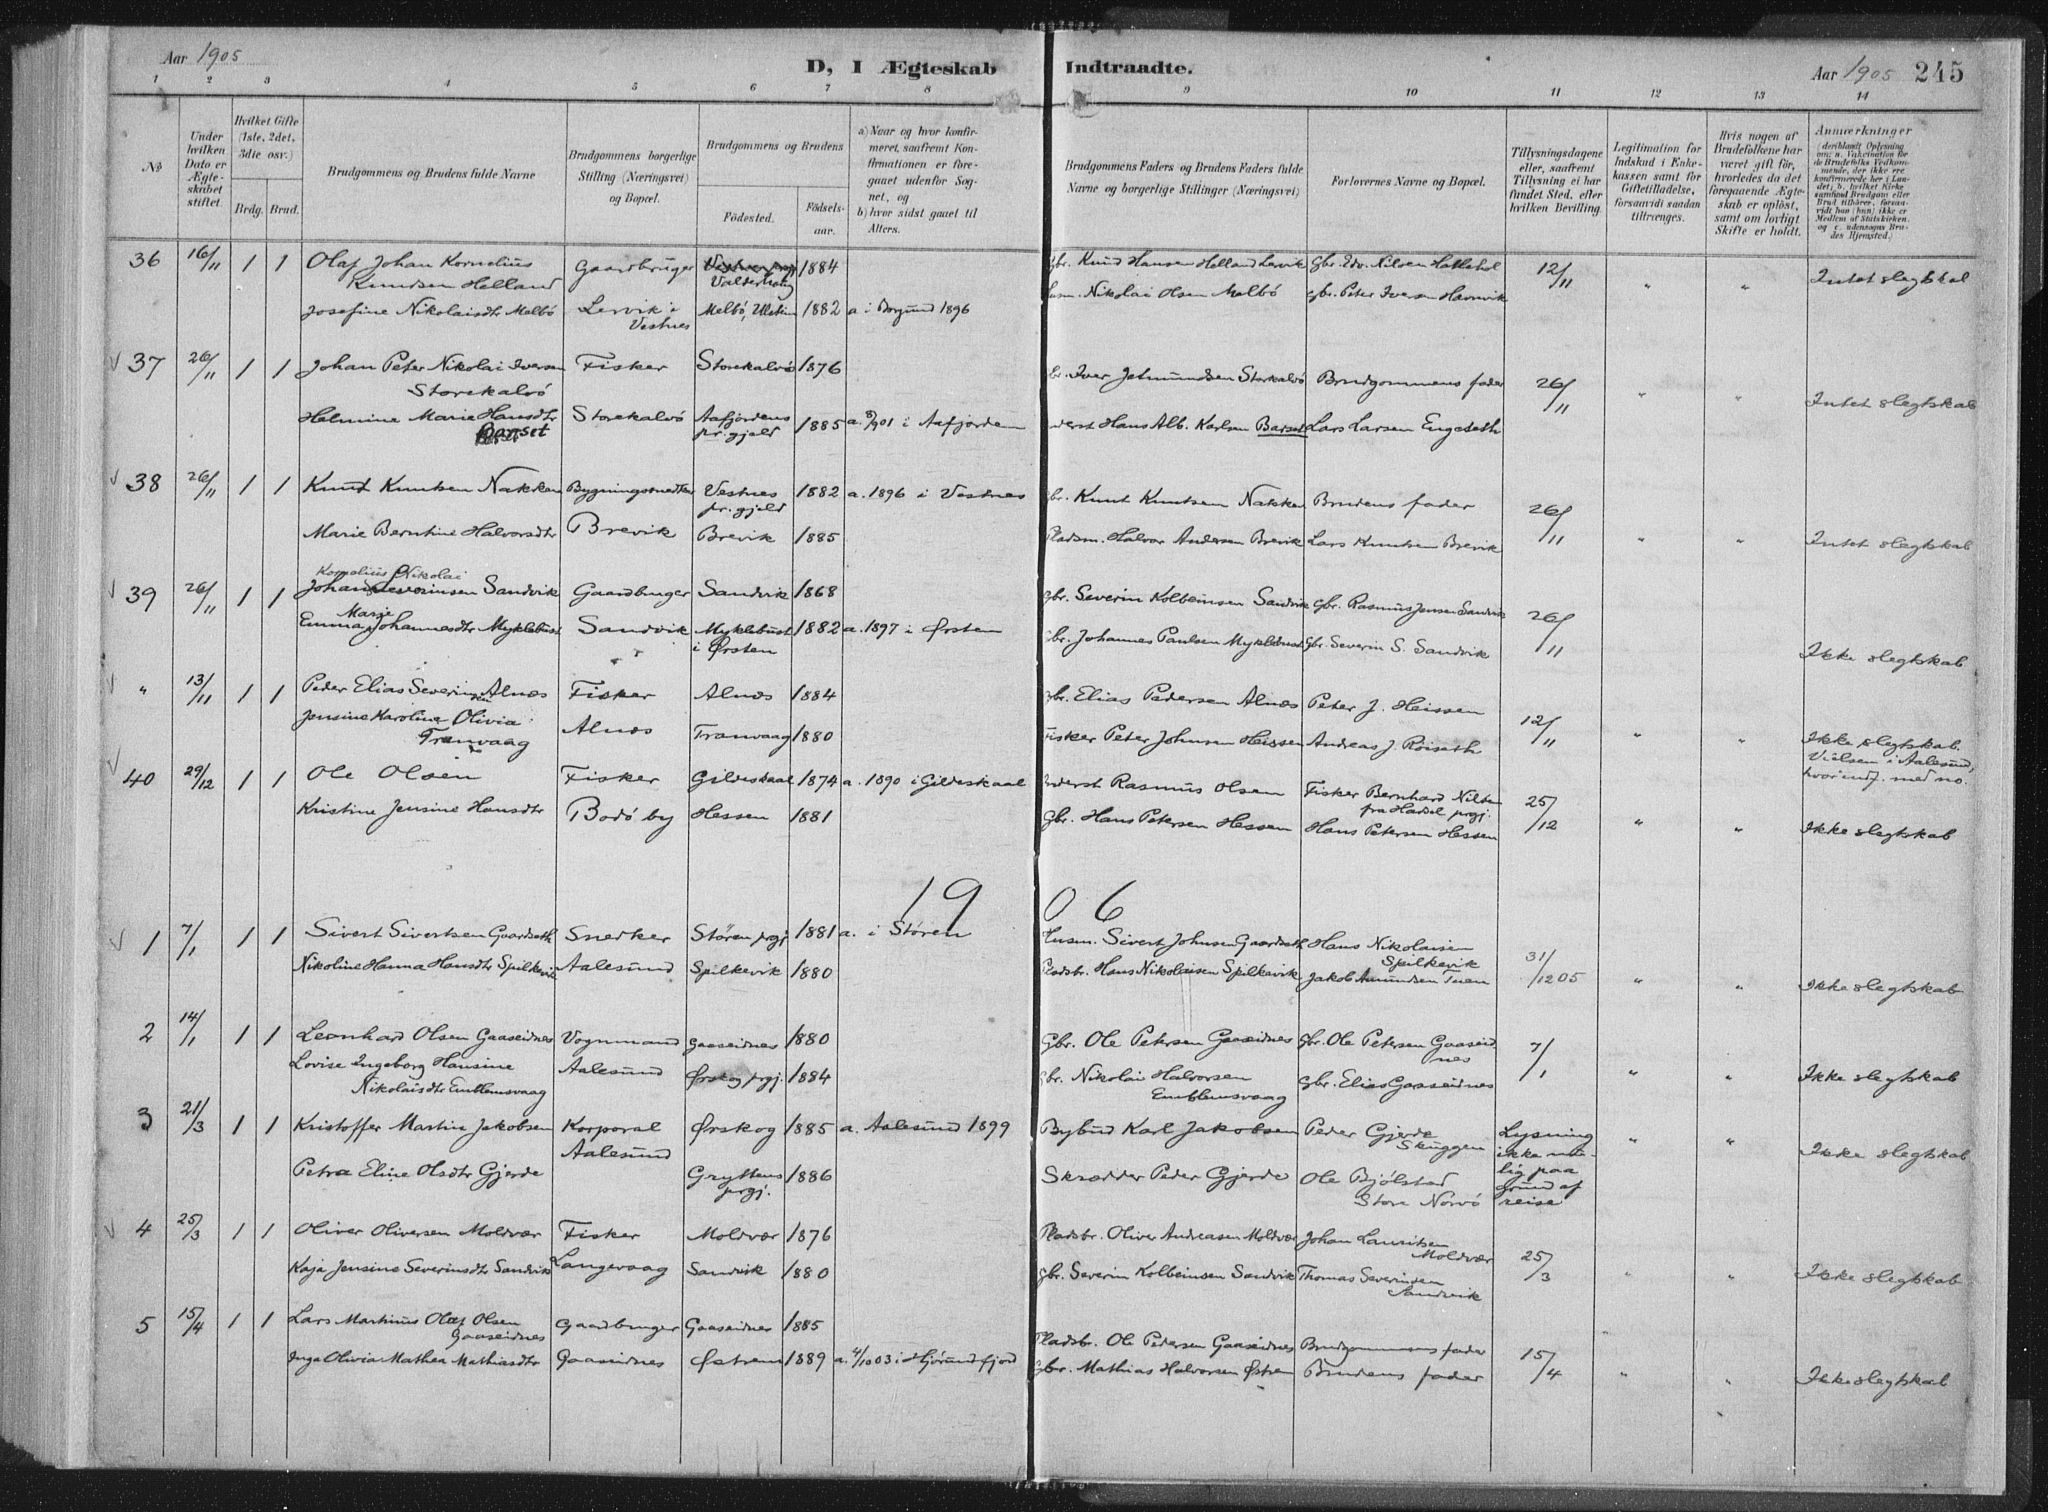 Aar 1905
D, I Ægteskab Indtraadte.
Aar 1905 245
1 2 3 4 5 6 7 8 9 10 11 12 13 14
No
Under hvilken Dato er Ægteskabet stiftet.
Hvilket Gifte (1ste, 2det, 3die osv.)
Brdg. Brud.
Brudgommens og Brudens fulde Navne
Brudgommens borgerlige Stilling (Næringsvei) og Bopæl.
Brudgommens og Brudens
Födested.
Födselsaar.
a) Naar og hvor konfirmeret, saafremt Konfirmationen er foregaaet udenfor Sognet, og
b) hvor sidst gaaet til Alters.
Brudgommens Faders og Brudens Faders fulde Navne og borgerlige Stillinger (Næringsvei)
Forlovernes Navne og Bopæl.
Tillysningsdagene eller, saafremt Tillysning ei har fundet Sted, efter hvilken Bevilling.
Legitimation for Indskud i Enkekassen samt for Giftetilladelse, forsaavidt saadan tiltrænges.
Hvis nogen af Brudefolkene har været gift för, hvorledes da det foregaaende Ægteskab er oplöst, samt om lovligt Skifte er holdt.
Anmærkninger (deriblandt Oplysning om: a. Vakcination for de Brudefolks Vedkommende, der ikke ere konfirmerede her i Landet; b. hvilket Kirkesamfund Brudgom eller Brud tilhörer, forsaavidt han (hun) ikke er Medlem af Statskirken, og c. udensogns Brudes Hjemsted.)
36 16/11 1 1 Olaf Johan Kornelius Knudsen Helland Gaardbruger Valderhaug 1884 Gbr. Knud Hansen Helland Lervik Gbr. Edv. Nilsen Hatlehol 12/11 " " Intet slegtskab
Josefine Nikolaisdtr Melbö Lervik i Vestnes Melbö, Ulstein 1882 a i Borgund 1896 Nikolai Olsen Melbö Gbr. Peter Iversen Havnvik
37 26/11 1 1 Johan Peter Nikolai Iversen Storekalvö Fisker Storekalvö 1876 Iver Jetmundsen Storkalvö Brudgommens fader 26/11 " " Intet slegtskab
Helmine Marie Hansdtr Barset Storekalvö Aafjordens pr.gjeld 1885 a. 8/901 i Aafjorden Hans Alb. Karlsen Barset Lars Larsen Engeseth
38 26/11 1 1 Knut Knutsen Nakken Bygningssnedker Vestnes pr.gjeld 1882 a. 1896 i Vestnes Gbr. Knut Knutsen Nakken Brudens fader 26/11 " " Intet slegtskab
Marie Berntine Halvorsdtr Brevik Brevik 1885 Pladsm. Halvor Andersen Brevik Lars Knutsen Brevik
39 26/11 1 1 Johan Kornelius Nikolai Severinsen Sandvik Gaardbruger Sandvik 1868 Gbr. Severin Kolbeinsen Sandvik Gbr. Rasmus Jensen Sandvik 26/11 " " Ikke slegtskab
Emma Marie Johannesdtr Myklebust Sandvik Myklebust i Ørsten 1882 a. 1897 i Ørsten Gbr. Johannes Paulsen Myklebust Gbr. Severin S. Sandvik
" 13/11 1 1 Peder Elias Severinsen Alnes Fisker Alnæs 1884 Gbr. Elias Pedersen Alnæs Peter J. Heissen 12/11 " " Ikke slegtskab.
Jensine Karoline Olivia Tranvaag Alnæs Tranvaag 1880 Fisker Peter Johnsen Heissen Andreas J. Röiseth Vielsen i Aalesund, hvor indf. med no.
40 29/12 1 1 Ole Olsen Fisker Gildeskaal 1874 a. 1890 i Gildeskaal Inderst Rasmus Olsen Fisker Bernhard Nilsen fra Hadsel prgj. 25/12 " " Ikke slegtskab
Kristine Jensine Hansdtr Bodö by Hessen 1881 Gbr. Hans Petersen Hessen Hans Petersen Hessen
1906
1 7/1 1 1 Sivert Sivertsen Gaardseth Snedker Støren prgj 1881 a. i Støren Husm. Sivert Johnsen Gaardseth Hans Nikolaisen Spilkevik 31/12 05 " " Ikke slegtskab
Nikoline Hanna Hansdtr Spilkevik Aalesund Spilkevik 1880 Pladsbr. Hans Nikolaisen Spilkevik Jakob Amundsen Tuen
2 14/1 1 1 Leonhard Olsen Gaaseidnes Vognmand Gaaseidnes 1880 Gbr. Ole Petersen Gaaseidnes Gbr. Ole Petersen Gaaseidnes 7/1 " " Ikke slegtskab
Lovise Ingeborg Hansine Nikolaisdtr Emblemsvaag Aalesund Ørskog prgj. 1884 Gbr. Nikolai Halvorsen Emblemsvaag Gbr. Elias Gaaseidnes
3 21/3 1 1 Kristoffer Martin Jakobsen Korporal Ørskog 1885 a. Aalesund 1899 Bybud Karl Jakobsen Peder Gjerde Skuggen Lysning ikke mulig paa grund af reise " " Ikke slegtskab
Petra Eline Olsdtr Gjerde Aalesund Gryttens prgj. 1886 Skrædder Peder Gjerde Ole Bjölstad Store Norvö
4 25/3 1 1 Oliver Oliversen Moldvær Fisker Moldvær 1876 Pladsbr. Oliver Andreasen Moldvær Johan Lauritsen Moldvær 25/3 " " Ikke slegtskab
Kaja Jensine Severinsdtr Sandvik Langevaag Sandvik 1880 Gbr. Severin Kolbeinsen Sandvik Thomas Severinsen Sandvik
5 15/4 1 1 Lars Martinus Olaf Olsen Gaaseidnes Gaardbruger Gaaseidnes 1885 Pladsbr. Ole Pedersen Gaaseidnes Brudgommens fader 15/4 " " Ikke slegtskab
Inga Olivia Mathea Mathiasdtr Gaaseidnes Østrem 1889 a. 4/10 03 i Hjörundfjord Gbr. Mathias Halvorsen Østrem Brudens fader